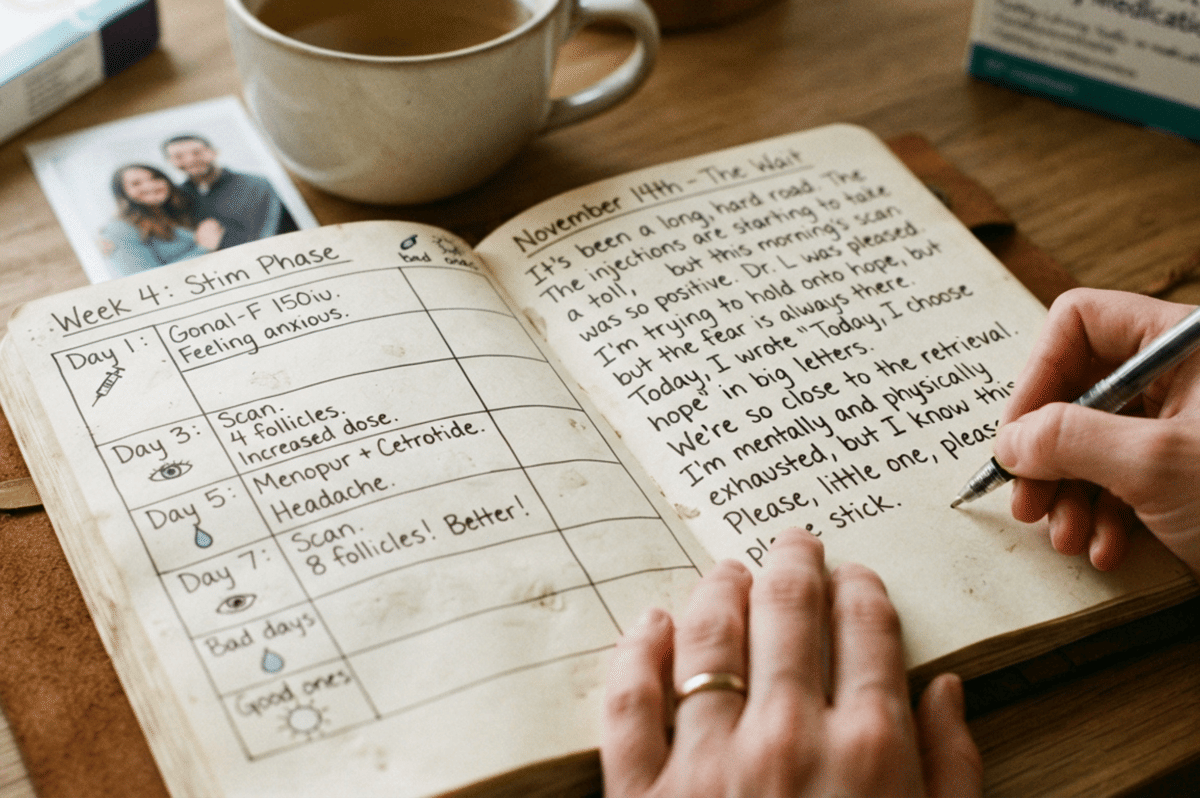 Week 4: Stim Phase
bad
Day 1:
Gonal-F 150iu.
Feeling anxious.
Day 3:
Scan.
4 follicles.
Increased dose.
Day 5:
Menopur + Cetrotide.
Headache.
Day 7:
Scan.
8 follicles! Better!
Bad days
Good ones
November 14th - The Wait
It's been a long, hard road. The
The injections are starting to take
a toll", but this morning's scan
was so positive. Dr. L was pleased.
I'm trying to hold onto hope, but
but the fear is always there.
Today, I wrote "Today, I choose
hope" in big letters.
We're so close to the retrieval.
I'm mentally and physically
exhausted, but I know this
Please, little one, please
stick.